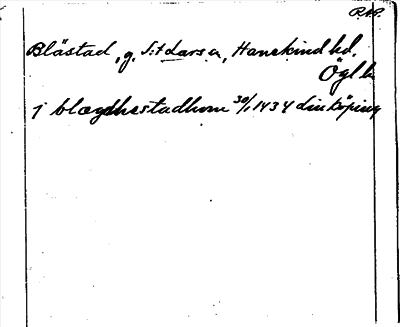 RAP.
Blästad, g. S:t Larsa, Hanekind hd,
Ögl
i blægdhestadhom 30/1 1434 Linköping